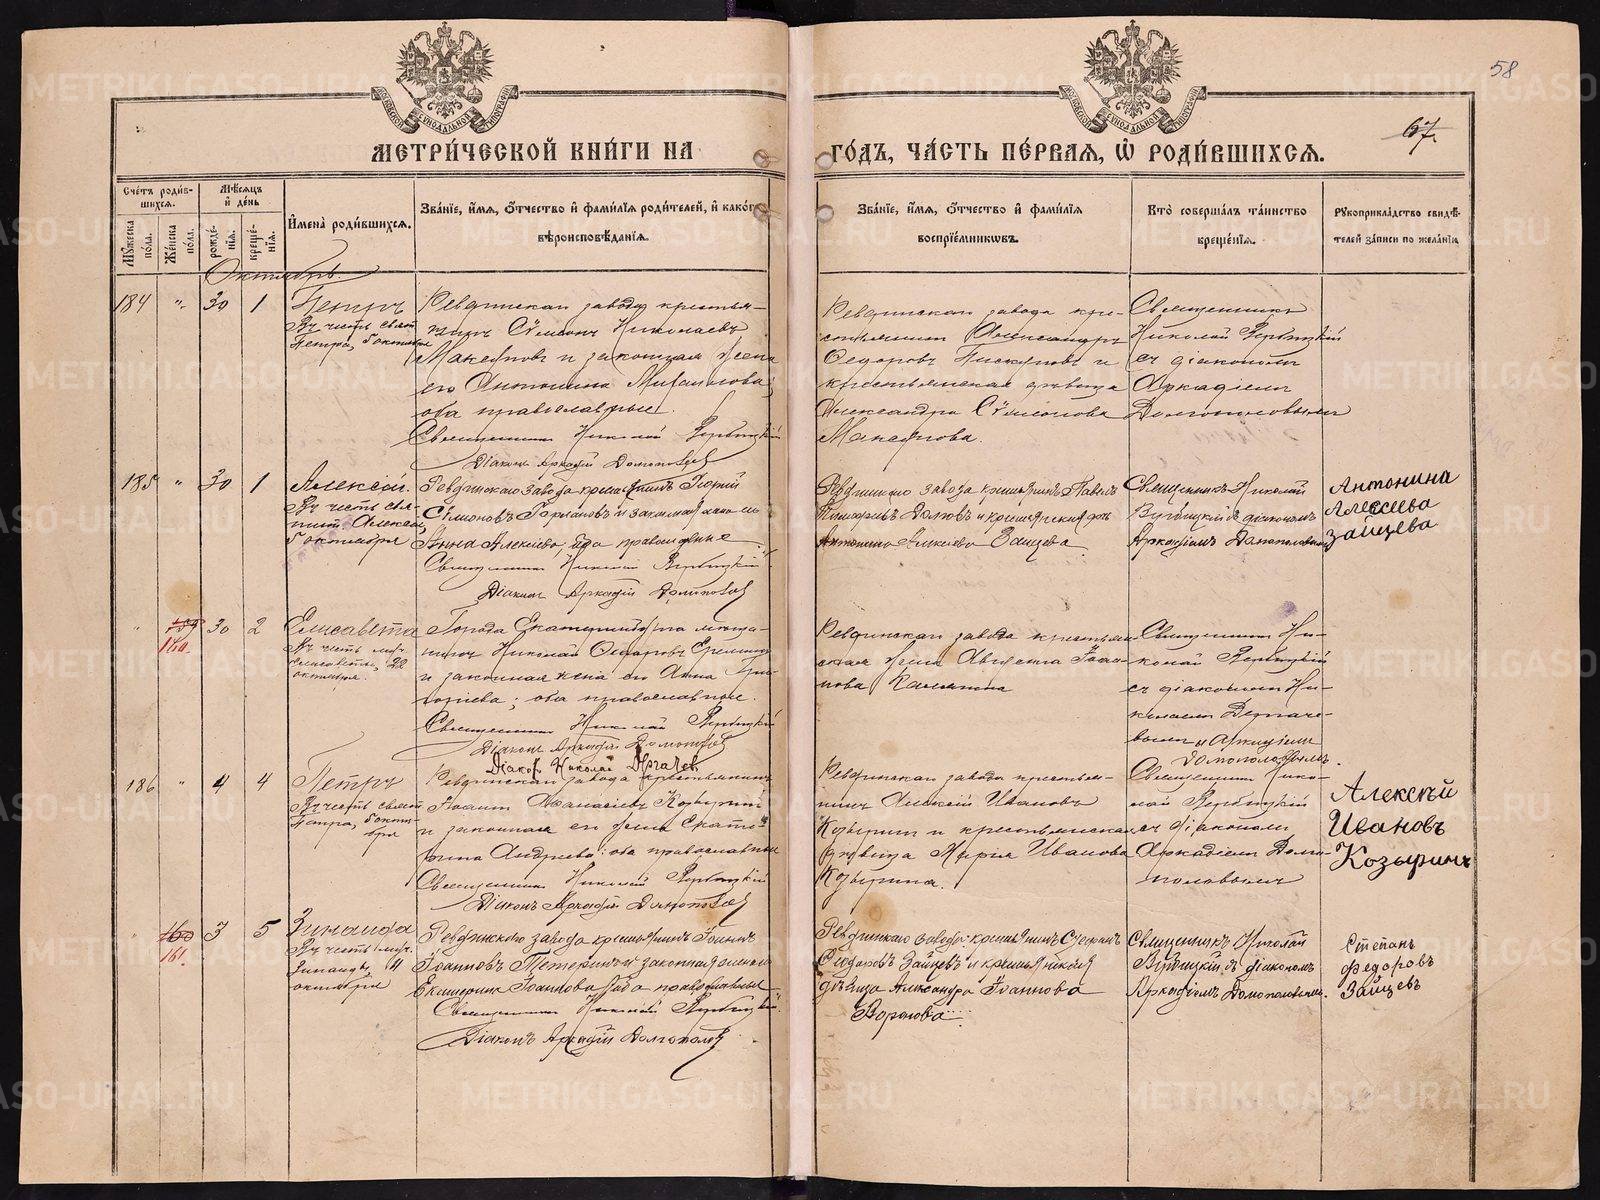 58
67
МЕТРИ́ЧЕСКОЙ КНИ́ГИ НА ГО́ДЪ, ЧА́СТЬ ПЕ́РВАЯ, Ѡ҆ РОДИ́ВШИХСЯ.
Сче́тъ роди́в-
шихся.
Му́жеска по́ла.
Же́нска по́ла.
Мѣ́сяцъ
и҆ де́нь
рожде́-
нїя.
креще́-
нїя.
И҆мена̀ роди́вшихся.
Зва́нїе, и҆́мя, ѻ҆́тчество и҆ фами́лїя роди́телей, и҆ како́гѡ
вѣроисповѣ́данїя.
Зва́нїе, и҆́мя, ѻ҆́тчество и҆ фами́лїя
воспрїе́мникѡвъ.
Кто̀ соверша́лъ та́инство
креще́нїя.
Рꙋкоприкла́дство свидѣ́-
телей за́писи по жела́нїю
Октябрь.
184 " 30 1
Петръ
Въ честь свят.
Петра, 6 октября
Ревдинскаго завода крестья-
нинъ Сѵмеонъ Николаевъ
и законная жена
его Антонина Михаилова,
оба православные.
Священникъ Николай
Діаконъ Аркадій
Ревдинскаго завода кре-
стьянинъ Александръ
Ѳедоровъ Пискуновъ и
крестьянская дѣвица
Александра Сѵмеонова
Священникъ
Николай
съ діакономъ
Аркадіемъ
Долгополовымъ
185 " 30 1
Алексій.
Въ честь свя-
тит. Алексія,
5 октября
Ревдинскаго завода крестьянинъ Георгій
Сѵмеоновъ и законная жена его
Анна Алексеева, оба православные
Священникъ Николай
Діаконъ Аркадій Долгополовъ
Ревдинскаго завода крестьянинъ Павелъ
и крестьянская дочь
Антонина Алексеева Зайцева
Священникъ Николай
съ діакономъ
Аркадіемъ Долгополовымъ
Антонина
Алексеева
Зайцева
" 159 160. 30 2
Елисавета
Въ честь муч.
Елисаветы, 22
октября.
Города Екатеринбурга мѣща-
нинъ Николай Ѳедоровъ
и законная жена его Анна Гри-
горіева; оба православные.
Священникъ Николай
Діаконъ Аркадій
Діакон Николай Дергачев
Ревдинскаго завода крестьян-
ская жена Августа Іоан-
нова Калягина
Священникъ Ни-
колай
съ діаконами Ни-
колаемъ Дергаче-
вымъ и Аркадіемъ
Долгополовымъ.
186 " 4 4
Петръ
Въ честь свят.
Петра, 6 октя-
бря
Ревдинскаго завода крестьянинъ
Іоаннъ Аѳанасіевъ Козыринъ
и законная его жена Екате-
рина Андреева: оба православные
Священникъ Николай
Діаконъ Аркадій Долгополовъ
Ревдинскаго завода крестья-
нинъ Алексій Ивановъ
Козыринъ и крестьянская
дѣвица Марія Иванова
Козырина.
Священникъ Нико-
лай
съ діакономъ
Аркадіемъ Долго-
половымъ
Алексѣй
Ивановъ
Козыринъ
" 160 161. 3 5
Зинаида
Въ честь муч.
Зинаиды, 11
октября
Ревдинскаго завода крестьянинъ Іоаннъ
Іоанновъ Тетеринъ и законная жена его
Екатерина Іоаннова; оба православные
Священникъ Николай
Діаконъ Аркадій Долгополовъ
Ревдинскаго завода крестьянинъ Стефанъ
Ѳеодоровъ Зайцевъ и крестьянская
дѣвица Александра Іоаннова
Священникъ Николай
съ діакономъ
Аркадіемъ Долгополовымъ.
Степанъ
Федоровъ
Зайцевъ
METRIKI.GASO-URAL.RU